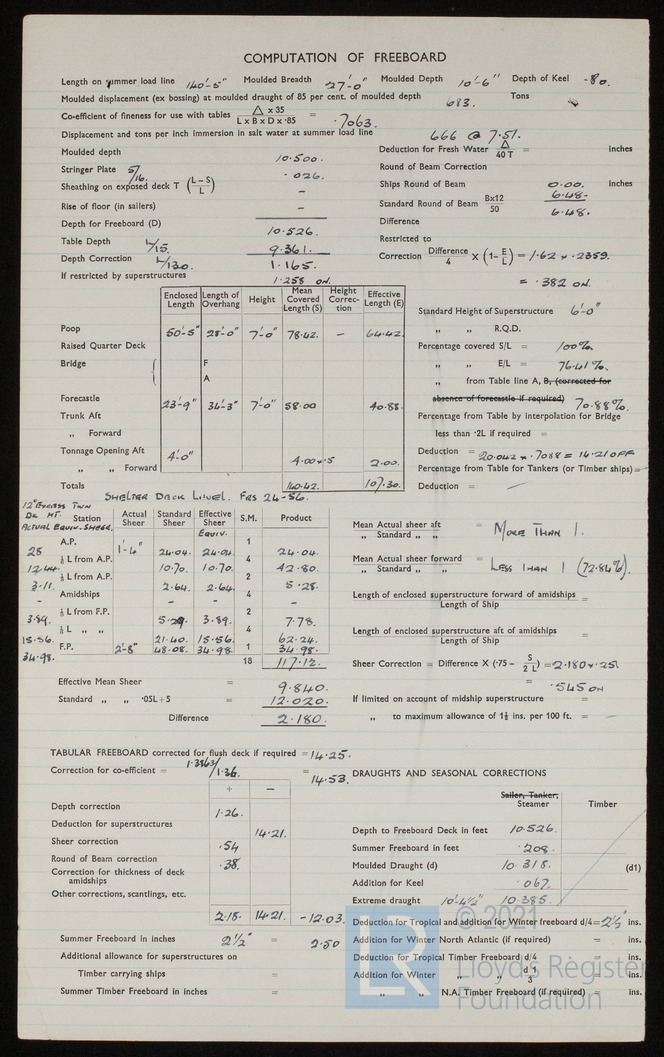 COMPUTATION OF FREEBOARD
Length on summer load line 140'-5" Moulded Breadth 27'-0" Moulded Depth 10'-6" Depth of Keel ·80.
Moulded displacement (ex bossing) at moulded draught of 85 per cent. of moulded depth 683. Tons
Co-efficient of fineness for use with tables △ x 35 / L x B x D x ·85 = ·7063.
Displacement and tons per inch immersion in salt water at summer load line 666 @ 7.51.
Moulded depth 10.500.
Stringer Plate 5/16. ·026.
Sheathing on exposed deck T (L–S / L) –
Rise of floor (in sailers) –
Depth for Freeboard (D) 10.526.
Table Depth L/15. 9.361.
Depth Correction L/130. 1.165.
If restricted by superstructures 1.258 ON.
Deduction for Fresh Water △ / 40 T = inches
Round of Beam Correction
Ships Round of Beam 0.00. Inches
Standard Round of Beam Bx12 / 50 6.48.
Difference 6.48.
Restricted to
Correction Difference / 4 X (1– E / L) = 1.62 x .2359.
= .382 ON.
Enclosed Length Length of Overhang Height Mean Covered Length (S) Height Correction Effective Length (E)
Poop 50'-5" 28'-0" 7'-0" 78.42. – 64.42.
Raised Quarter Deck
Bridge F
A
Forecastle 23'-9" 34'-3" 7'-0" 58.00 40.88.
Trunk Aft
" Forward
Tonnage Opening Aft 4'-0" 4.00 x .5 2.00.
" " Forward
Totals 140.42. 107.30.
Standard Height of Superstructure 6'-0"
" " R.Q.D.
Percentage covered S/L = 100%.
" " E/L = 76.41%.
" from Table line A, B, (corrected for
absence of forecastle if required) 70.88%.
Percentage from Table by interpolation for Bridge
less than ·2L if required =
Deduction = 20.042 x .7088 = 14.21 OFF
Percentage from Table for Tankers (or Timber ships) =
Deduction = –
SHELTER DECK LEVEL. FRS 24-56.
12" EXCESS TWN
DK HT.
ACTUAL EQUIV. SHEER.
Station Actual Sheer Standard Sheer Effective Sheer EQUIV. S.M. Product
28 A.P. 1'-4" 24.04. 24.04. 1 24.04.
12.44. ⅙ L from A.P. 10.70. 10.70. 4 42.80.
3.11. ⅓ L from A.P. 2.64. 2.64. 2 5.28.
– Amidships – – 4 –
3.89. ⅓ L from F.P. 5.29. 3.89. 2 7.78.
15.56. ⅙ L " " 21.40. 15.56. 4 62.24.
34.98. F.P. 2'-8" 48.08. 34.98. 1 34.98.
18 177.12.
Effective Mean Sheer = 9.840.
Standard " " ·05L+5 = 12.020.
Difference 2.180.
Mean Actual sheer aft / " Standard " " = MORE THAN 1.
Mean Actual sheer forward / " Standard " " = LESS THAN 1 (72.84%).
Length of enclosed superstructure forward of amidships / Length of Ship =
Length of enclosed superstructure aft of amidships / Length of Ship =
Sheer Correction = Difference X (·75 – S / 2 L) = 2.180 x .25
= .545 ON
If limited on account of midship superstructure =
" to maximum allowance of 1½ ins. per 100 ft. =
TABULAR FREEBOARD corrected for flush deck if required = 14.25.
Correction for co-efficient = 1.3863/1.36. = 14.53.
+ –
Depth correction 1.26.
Deduction for superstructures 14.21.
Sheer correction .54
Round of Beam correction .38.
Correction for thickness of deck
amidships
Other corrections, scantlings, etc.
2.18. 14.21. -12.03.
Summer Freeboard in inches 2½" = 2.50
Additional allowance for superstructures on
Timber carrying ships =
Summer Timber Freeboard in inches =
DRAUGHTS AND SEASONAL CORRECTIONS
Sailer, Tanker,
Steamer Timber
Depth to Freeboard Deck in feet 10.526.
Summer Freeboard in feet .208.
Moulded Draught (d) 10.318. (d1)
Addition for Keel .067.
Extreme draught 10'-4½" 10.385.
Deduction for Tropical and addition for Winter freeboard d/4 = 2½" ins.
Addition for Winter North Atlantic (if required) = ins.
Deduction for Tropical Timber Freeboard d/4 = ins.
Addition for Winter " " d1 / 3 = ins.
" " N.A. Timber Freeboard (if required) = ins.
LR
© 2021
Lloyd's Register
Foundation